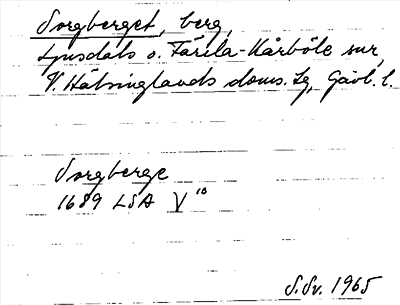 Sorgberget, berg,
Ljusdals o. Färila-Kårböle snr,
V. Hälsinglands doms. lg, Gävl. l.
Sorgberge
1689 LSA V 10
S.Sv. 1965